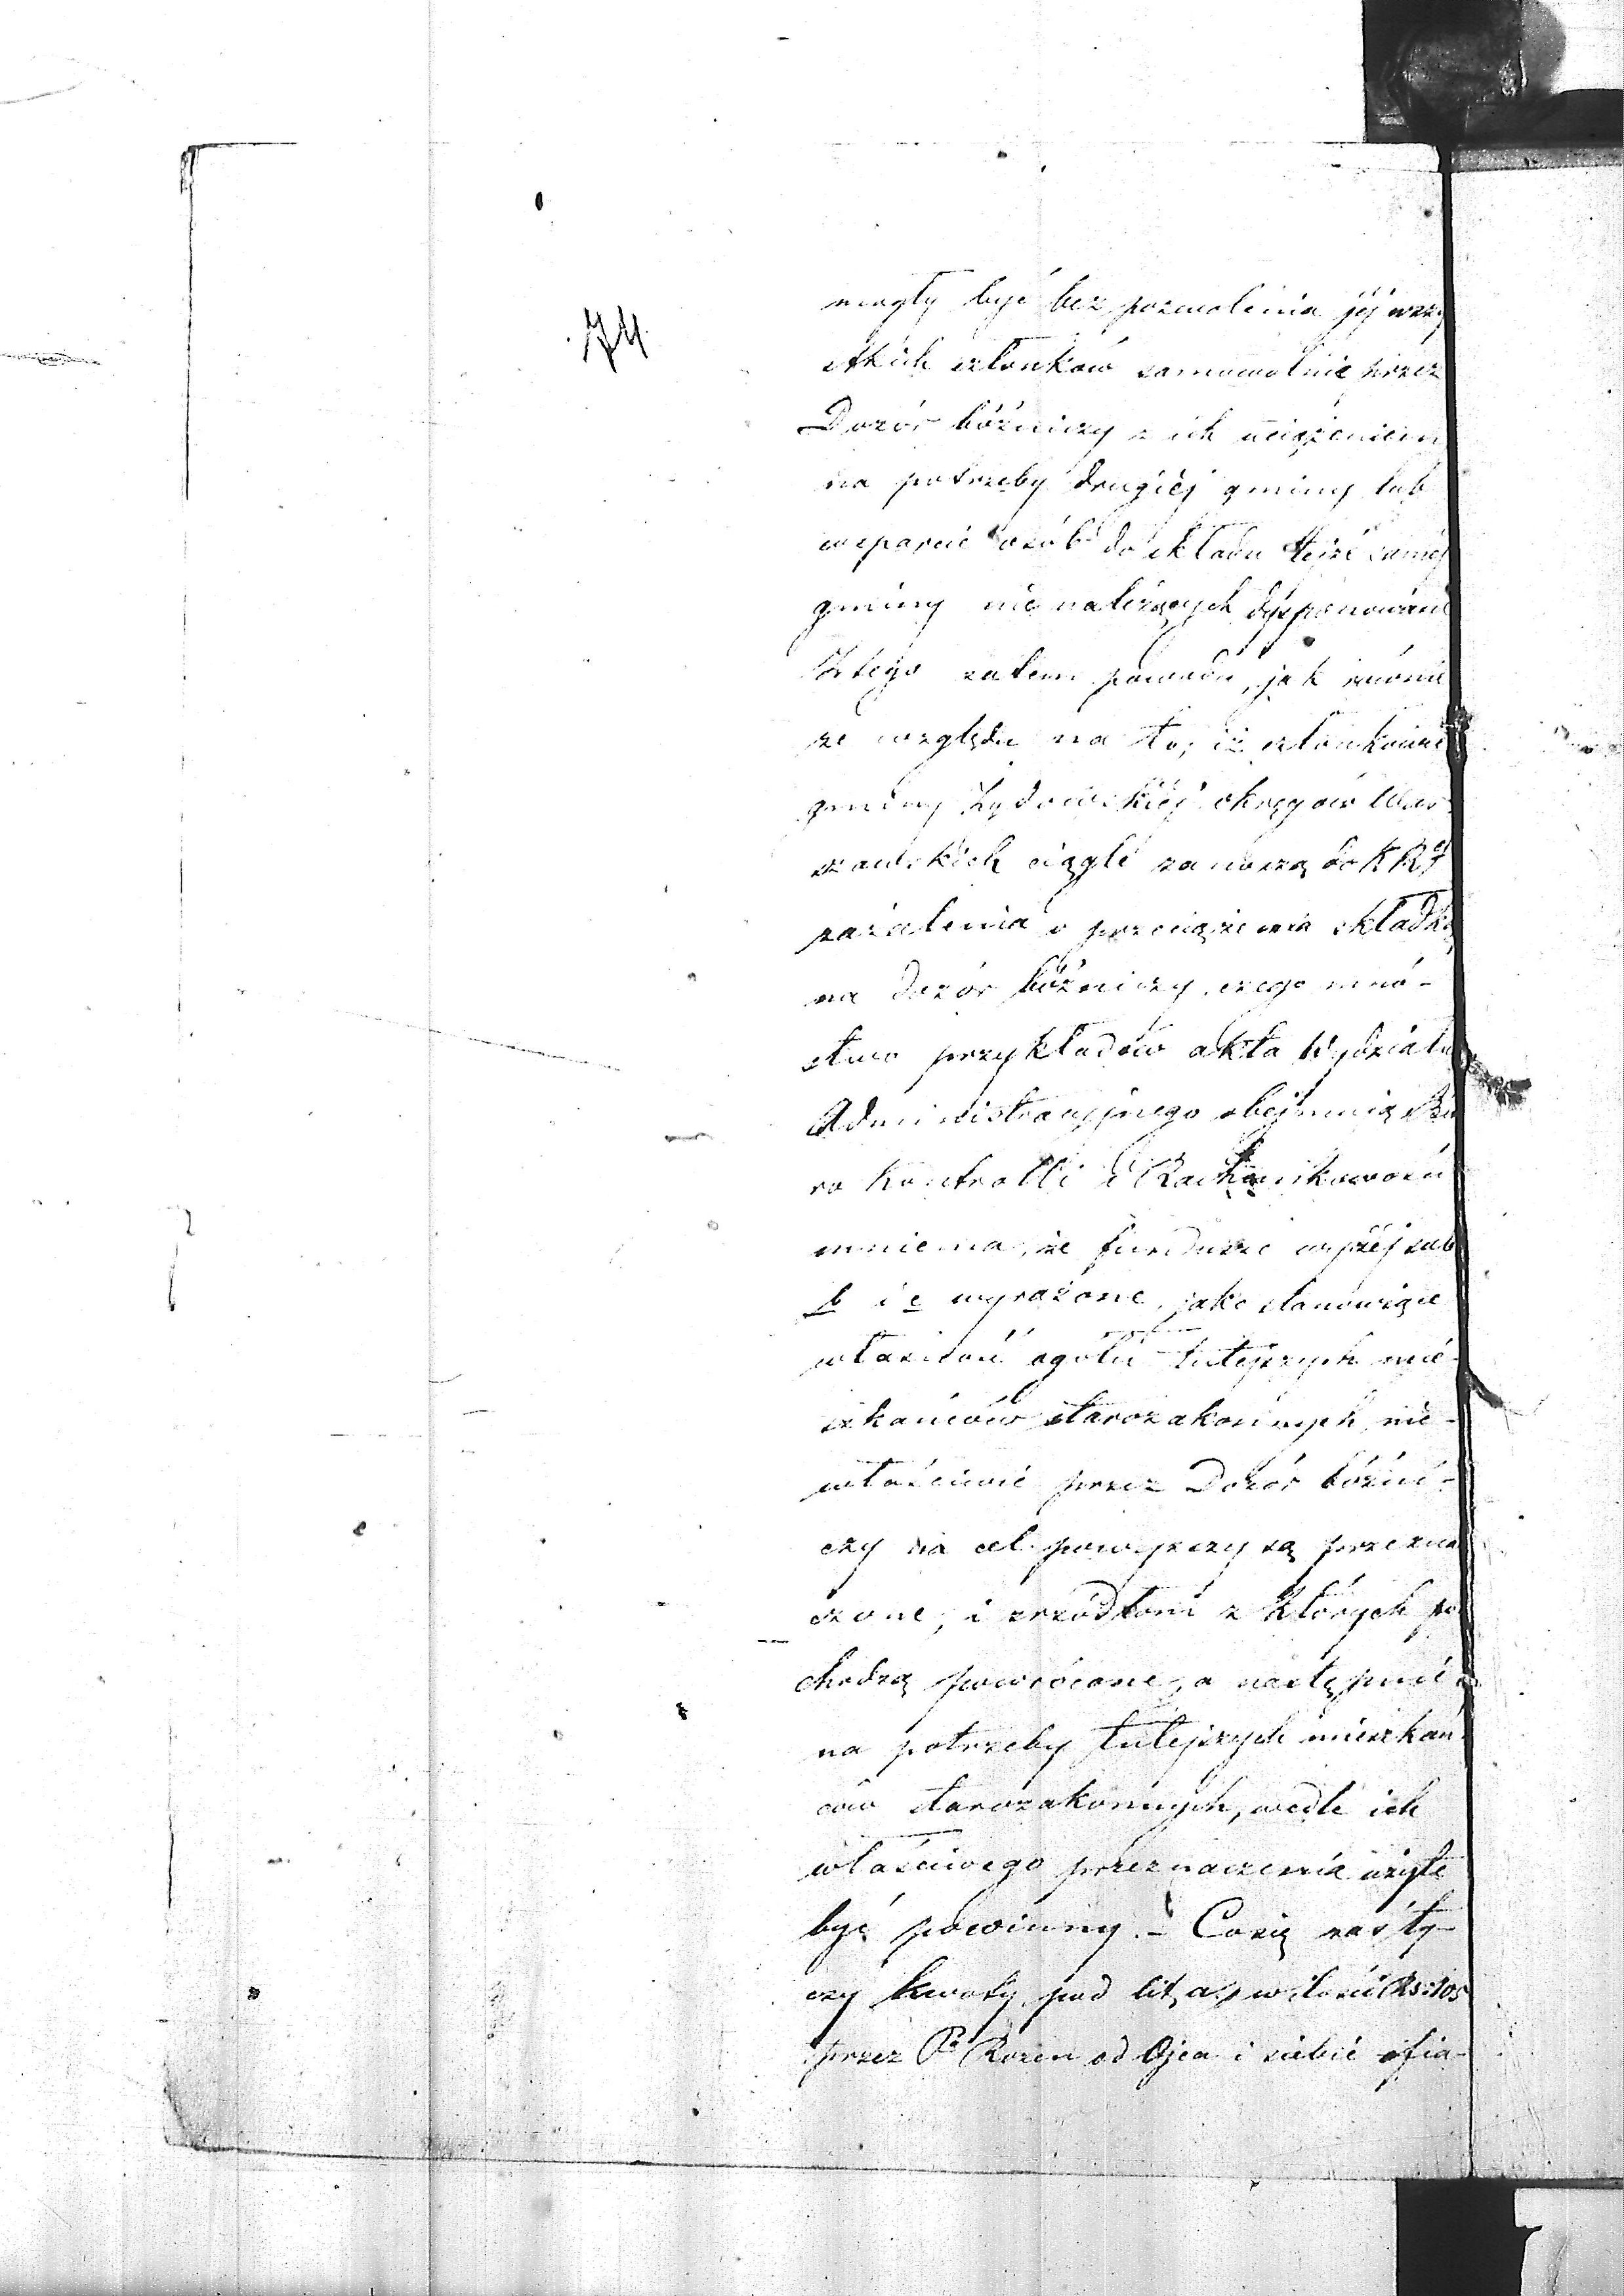 74
mogły być bez pozwolenia jéj wszy
stkich członków samowolnie przez
Dozór bóżniczy z ich uciążeniem
na potrzeby drugiéj gminy lub
wsparcie osób do składu tejże saméj
gminy nie należących dysponowane
Z tego zatem powodu, jak równie
ze względu na to, iż członkowie
gminy Żydowskiéj okręgów War
szawskich ciągle zanoszą do KR
zażalenia o przeciążenia składką
na dozór bóżniczy, czego mnó-
stwo przykładów akta Wydziału
Administracyjnego obejmują Biu
ro Kontrolli i Rachunkowości
mniema, że fundusze wyżéj sub
b i c wyrażone, jako stanowiące
własność ogółu tutejszych mie-
szkańców starozakonnych, nie-
właściwie przez Dozór bóżni-
czy na cel powyższy są przezna
czone, i źrzódłom z których po
chodzą powrócone, a następnie
na potrzeby tutejszych mieszkań
ców starozakonnych, wedle ich
właściwego przeznaczenia użyte
być powinny. - Co się zaś ty-
czy kwoty pod lit. a, w ilości Rs: 105
przez Pa Rosen od Ojca i siebie ofia-